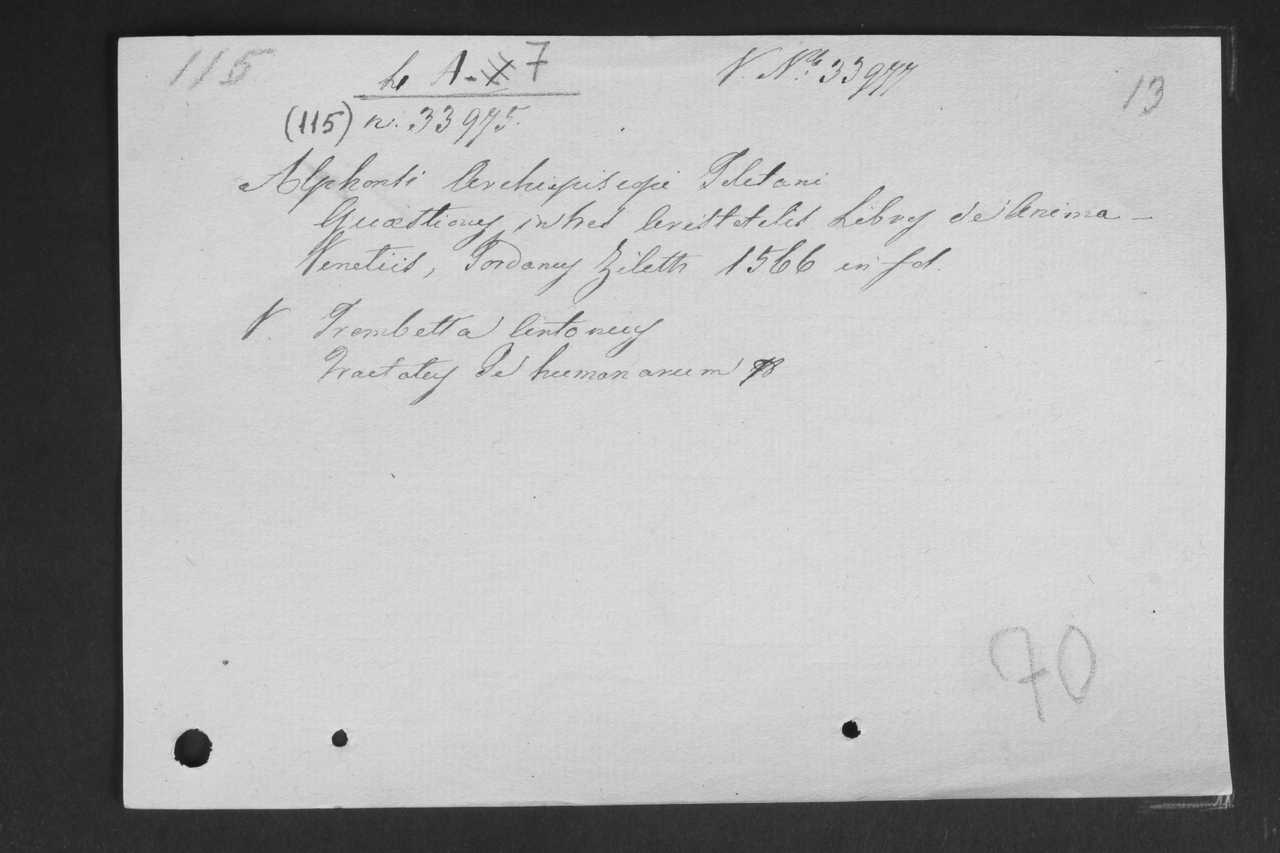 115
A. 7
V. Nr. 33977
13
(115) n. 33975.
Alphonsi Archiepiscopi Toletani
Quæstiones in tres Aristotelis Libros de Anima —
Venetiis, Jordanus Ziletti 1566 in fol.
V. Trombetta Antonius
Tractatus De humanarum
70